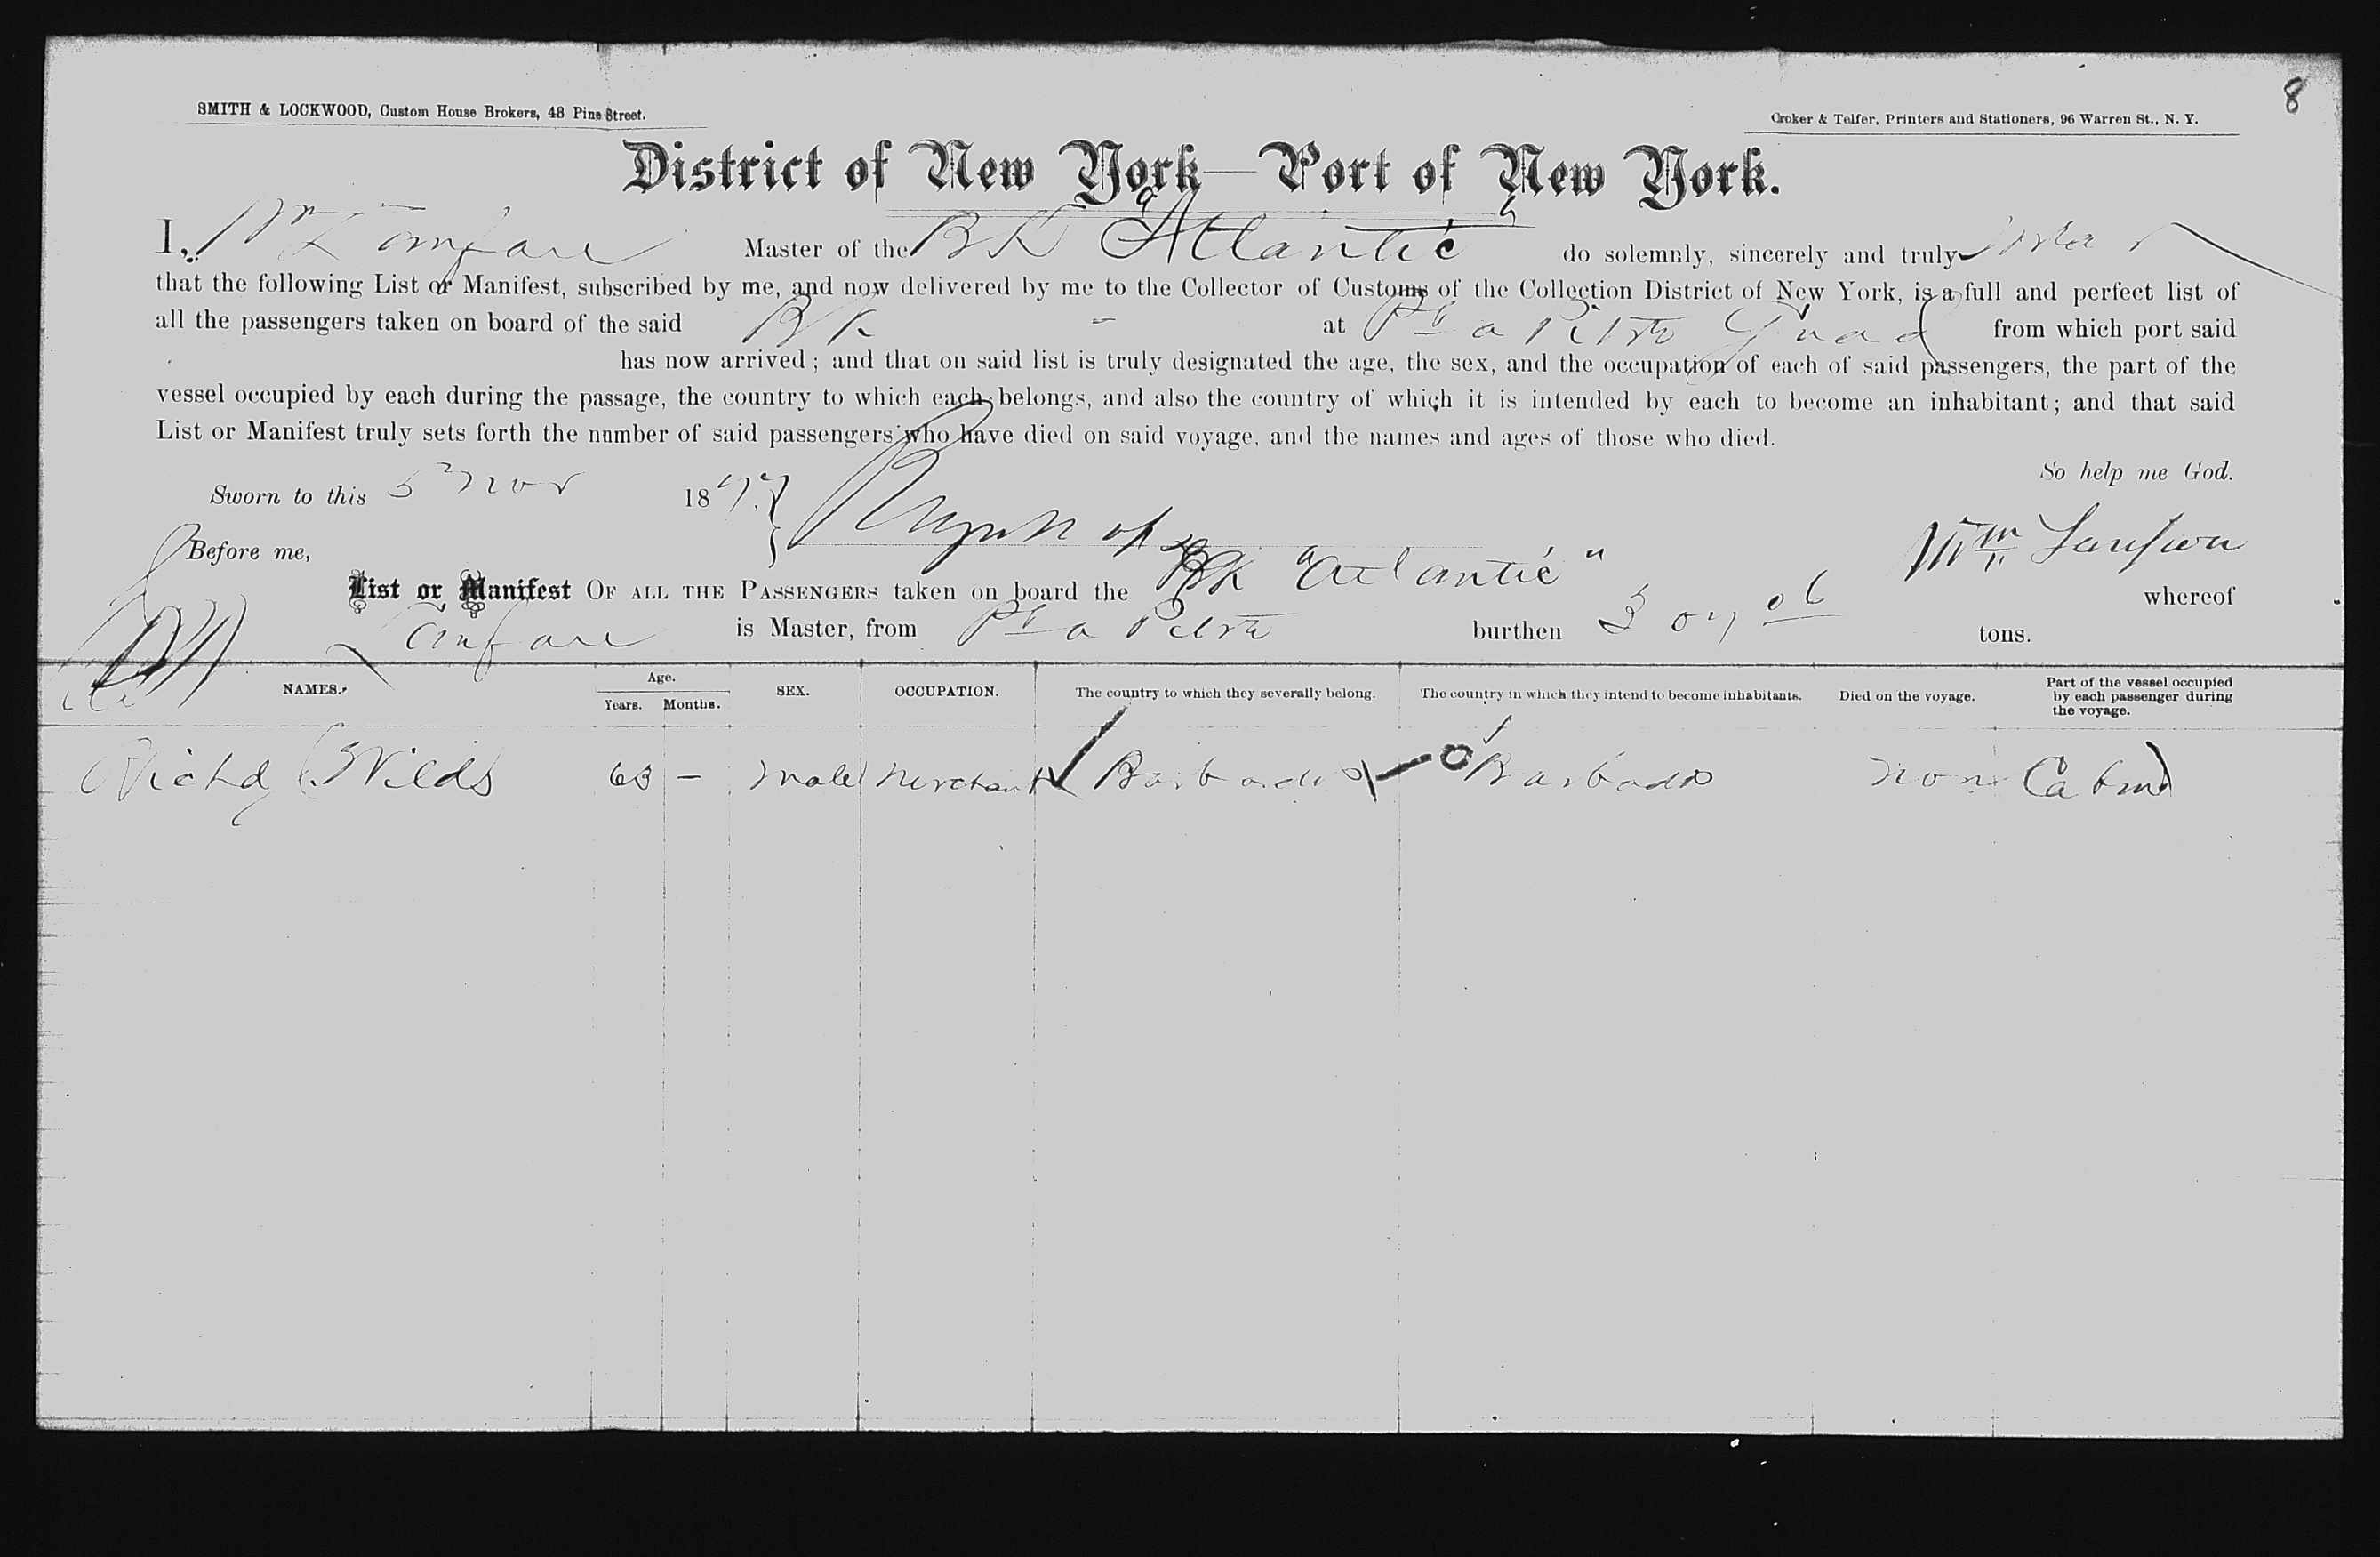 8
SMITH & LOCKWOOD, Custom House Brokers, 48 Pine Street.
Croker & Telfer, Printers and Stationers, 96 Warren St., N. Y.
District of New York—Port of New York.
I, Wm Master of the BK "Atlantic" do solemnly, sincerely and truly swear
that the following List or Manifest, subscribed by me, and now delivered by me to the Collector of Customs of the Collection District of New York, is a full and perfect list of
all the passengers taken on board of the said BK at Pt a Pitre Guad from which port said
has now arrived; and that on said list is truly designated the age, the sex, and the occupation of each of said passengers, the part of the
vessel occupied by each during the passage, the country to which each belongs, and also the country of which it is intended by each to become an inhabitant; and that said
List or Manifest truly sets forth the number of said passengers who have died on said voyage, and the names and ages of those who died.
So help me God.
Sworn to this 5 Nov 1877.
Before me,
Wm
List or Manifest OF ALL THE PASSENGERS taken on board the BK "Atlantic" whereof
is Master, from Pt a Pitre burthen 307 06 tons.
NAMES. Age. Years. Months. SEX. OCCUPATION. The country to which they severally belong. The country in which they intend to become inhabitants. Died on the voyage. Part of the vessel occupied by each passenger during the voyage.
Richd Wilds 63 — male Merchant Barbados Barbados none Cabin